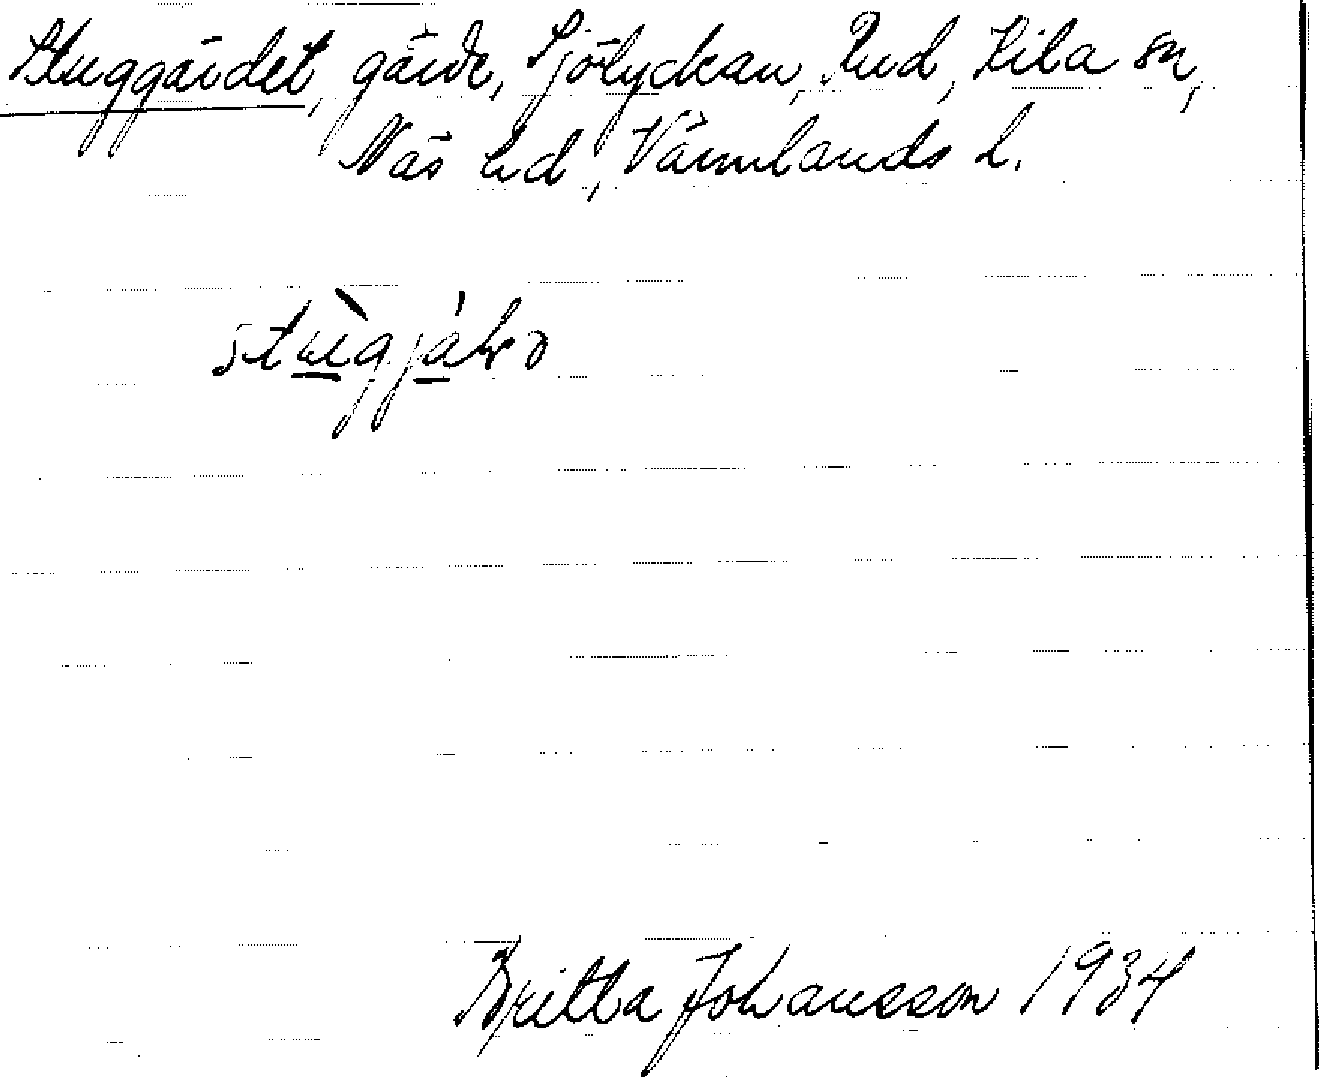 Stuggärdet, gärde, Sjölyckan, Rud, Kila sn,
Näs hd, Värmlands l.
Britta Johansson 1934